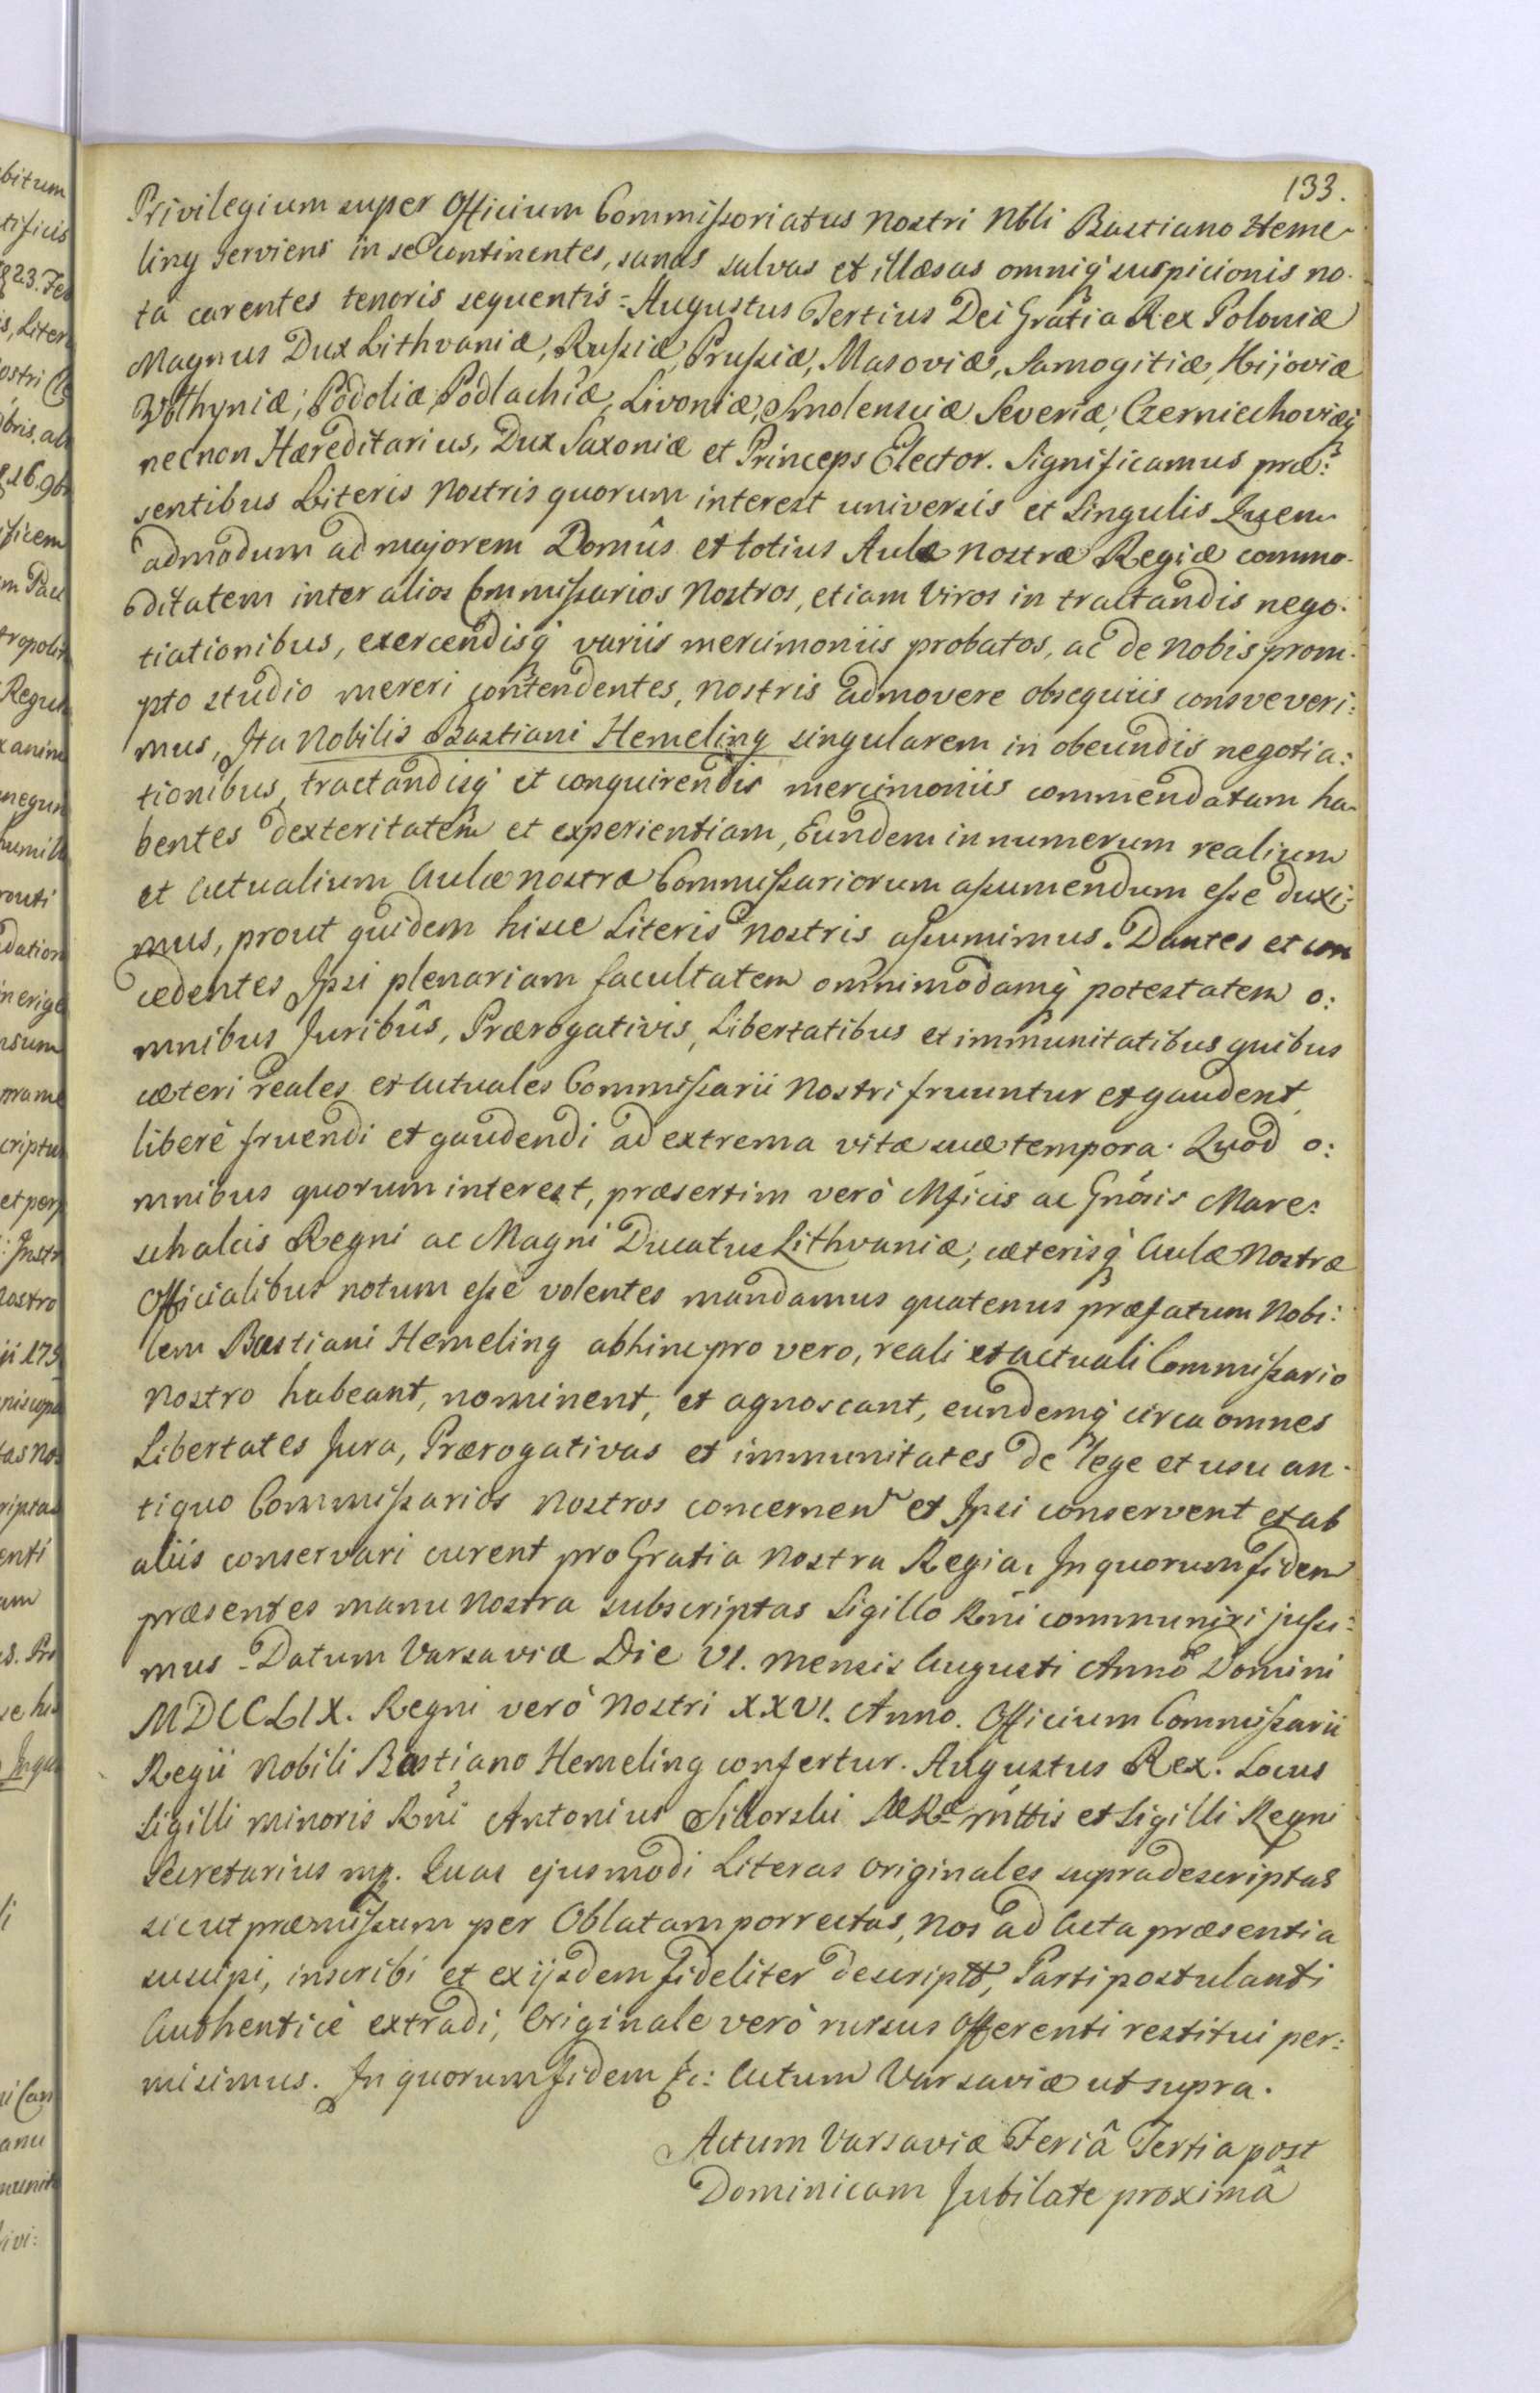 133.
Privilegium super Officium Commissoriatus Nostri Nbli Bastiano Heme-
ling serviens in se continentes, sanas salvas et illæsas omniq suspicionis no-
ta carentes tenoris sequentis = Augustus Tertius Dei Gratia Rex Poloniæ
Magnus Dux Lithvaniæ, Russiæ, Prussiæ, Masoviæ, Samogitiæ, Kijoviæ
Wolhyniæ, Podoliæ, Podlachiæ, Livoniæ, Smolensciæ Severiæ, Czerniechoviæq
necnon Hæreditarius, Dux Saxoniæ et Princeps Elector. Significamus præ:
sentibus Literis Nostris quorum interest universis et Singulis Quem
admodum ad majorem Domûs et totius Aulæ Nostræ Regiæ commo-
ditatem inter alios Commissarios Nostros, etiam Viros in tractandis nego-
tiationibus, exercendisq variis mercimoniis probatos, ac de Nobis prom-
pto studio mereri contendentes, Nostris admovere obsequiis consveveri:
mus, Ita Nobilis Bastiani Hemeling singularem in obeundis negotia:
tionibus, tractandisq et conquirendis mercimoniis commendatam ha-
bentes dexteritatem et experientiam, Eundem in numerum realium
et Actualium Aulæ Nostræ Commissariorum assumendum esse duxi:
mus, prout quidem hisce Literis Nostris assumimus. Dantes et con
cedentes Ipsi plenariam facultatem omnimodamq potestatem o:
mnibus Juribûs, Prærogativis, Libertatibus et immunitatibus quibus
cæteri reales et Actuales Commissarii Nostri fruuntur et gaudent,
liberè fruendi et gaudendi ad extrema vitæ suæ tempora. Quod o:
mnibus quorum interest, præsertim verò Mficis ac Gnosis Mare:
schalcis Regni ac Magni Ducatus Lithvaniæ, cæterisq Aulæ Nostræ
Officialibus notum esse volentes mandamus quatenus præfatum Nobi:
lem Bastiani Hemeling abhinc pro vero, reali et actuali Commissario
Nostro habeant, nominent, et agnoscant, eundemq circa omnes
Libertates Jura, Prærogativas et immunitates de lege et usu an-
tiquo Commissarios Nostros concernen et Ipsi conservent et ab
aliis conservari curent pro Gratia Nostra Regia. In quorum fidem
præsentes manu Nostra subscriptas Sigillo Rni communiri jussi:
mus - Datum Varsaviæ Die VI. Mensis Augusti Annô Domini
MDCCLIX. Regni verò Nostri XXVI. Anno. Officium Commissarii
Regii Nobili Bastiano Hemeling confertur. Augustus Rex. Locus
Sigilli minoris Rni Antonius Sikorski et Sigilli Regni
Secretarius mp. Quas ejusmodi Literas Originales supradescriptas
sicut præmissum per Oblatam porrectas, Nos ad Acta præsentia
suscipi, inscribi et ex ijsdem fideliter descriptt, Parti postulanti
Authenticè extradi, Originale verò rursus Offerenti restitui per:
misimus. In quorum fidem &c: Actum Varsaviæ ut supra.
Actum Varsaviæ Feriâ Tertia post
Dominicam Jubilate proximâ